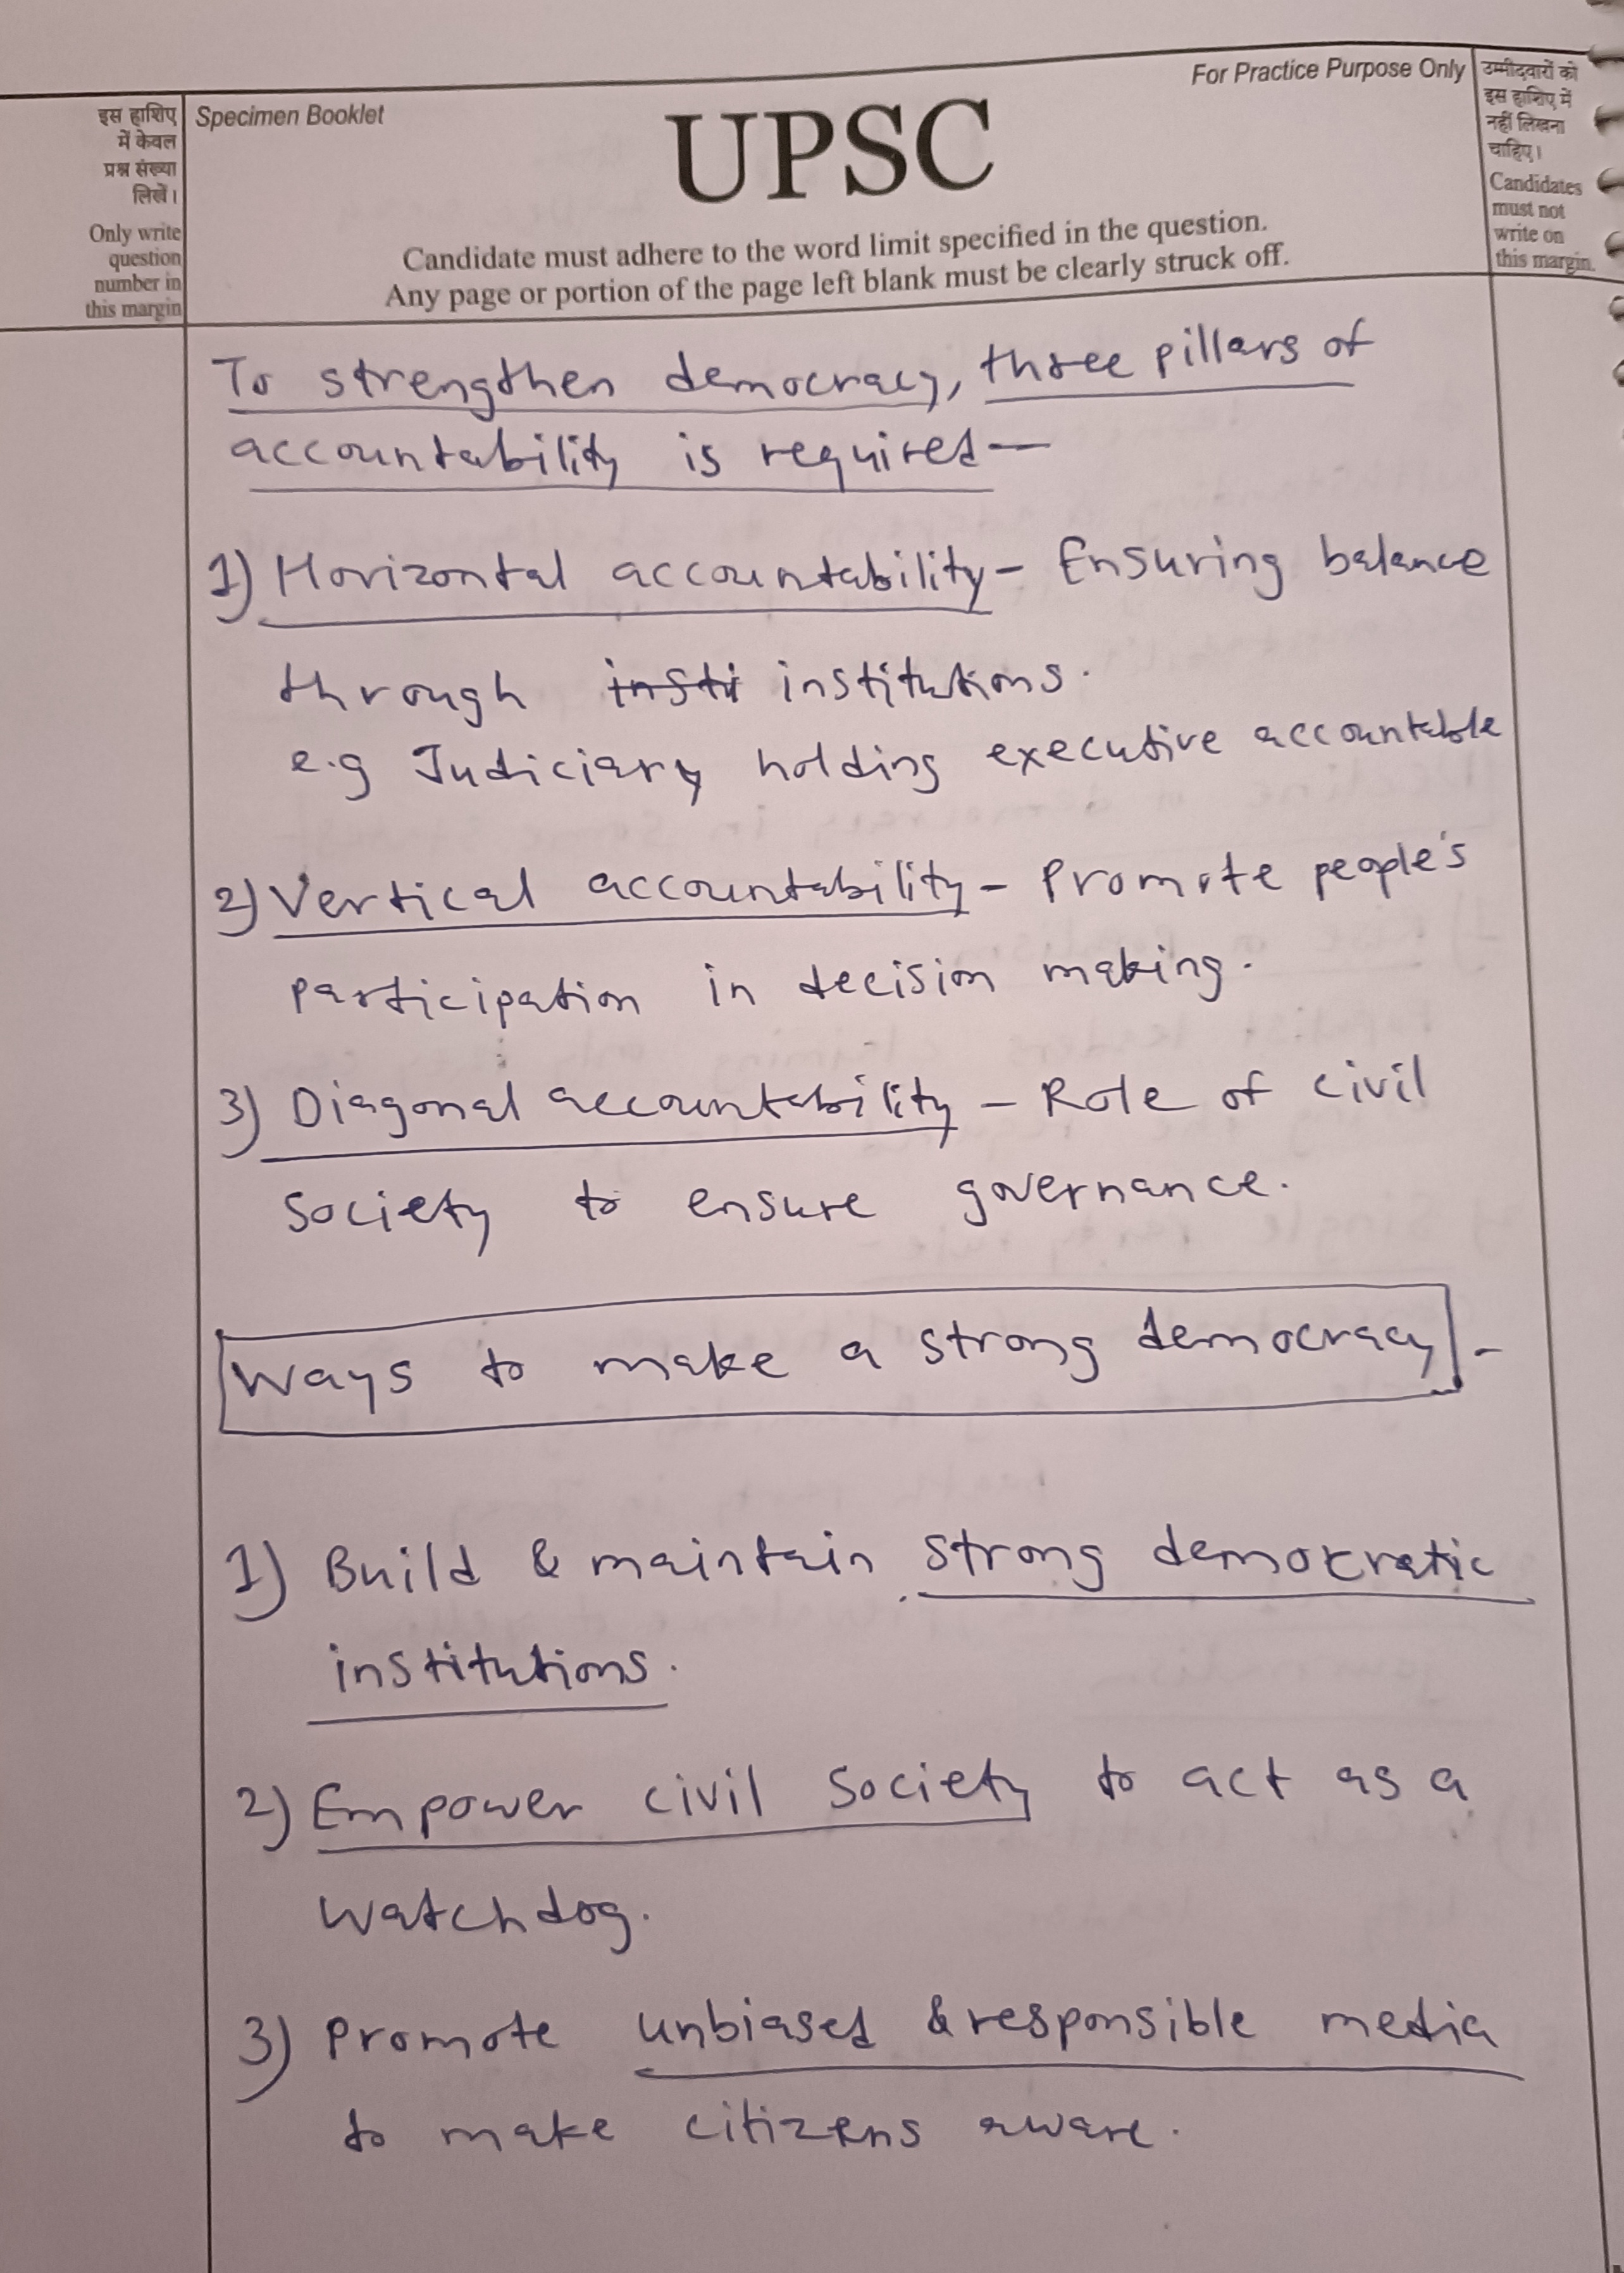 इस हाशिए
में केवल
प्रश्न संख्या
लिखें।
Only write
question
number in
this margin
Specimen Booklet
For Practice Purpose Only
UPSC
Candidate must adhere to the word limit specified in the question.
Any page or portion of the page left blank must be clearly struck off.
उम्मीदवारों को
इस हाशिए में
नहीं लिखना
चाहिए।
Candidates
must not
write on
this margin.
To strengthen democracy, three pillars of
accountability is required—
1) Horizontal accountability - Ensuring balance
through insti institutions.
e.g Judiciary holding executive accountable
2) Vertical accountability - Promote people's
participation in decision making.
3) Diagonal accountability - Role of civil
society to ensure governance.
Ways to make a strong democracy -
1) Build & maintain strong democratic
institutions.
2) Empower civil society to act as a
watchdog.
3) Promote unbiased & responsible media
to make citizens aware.